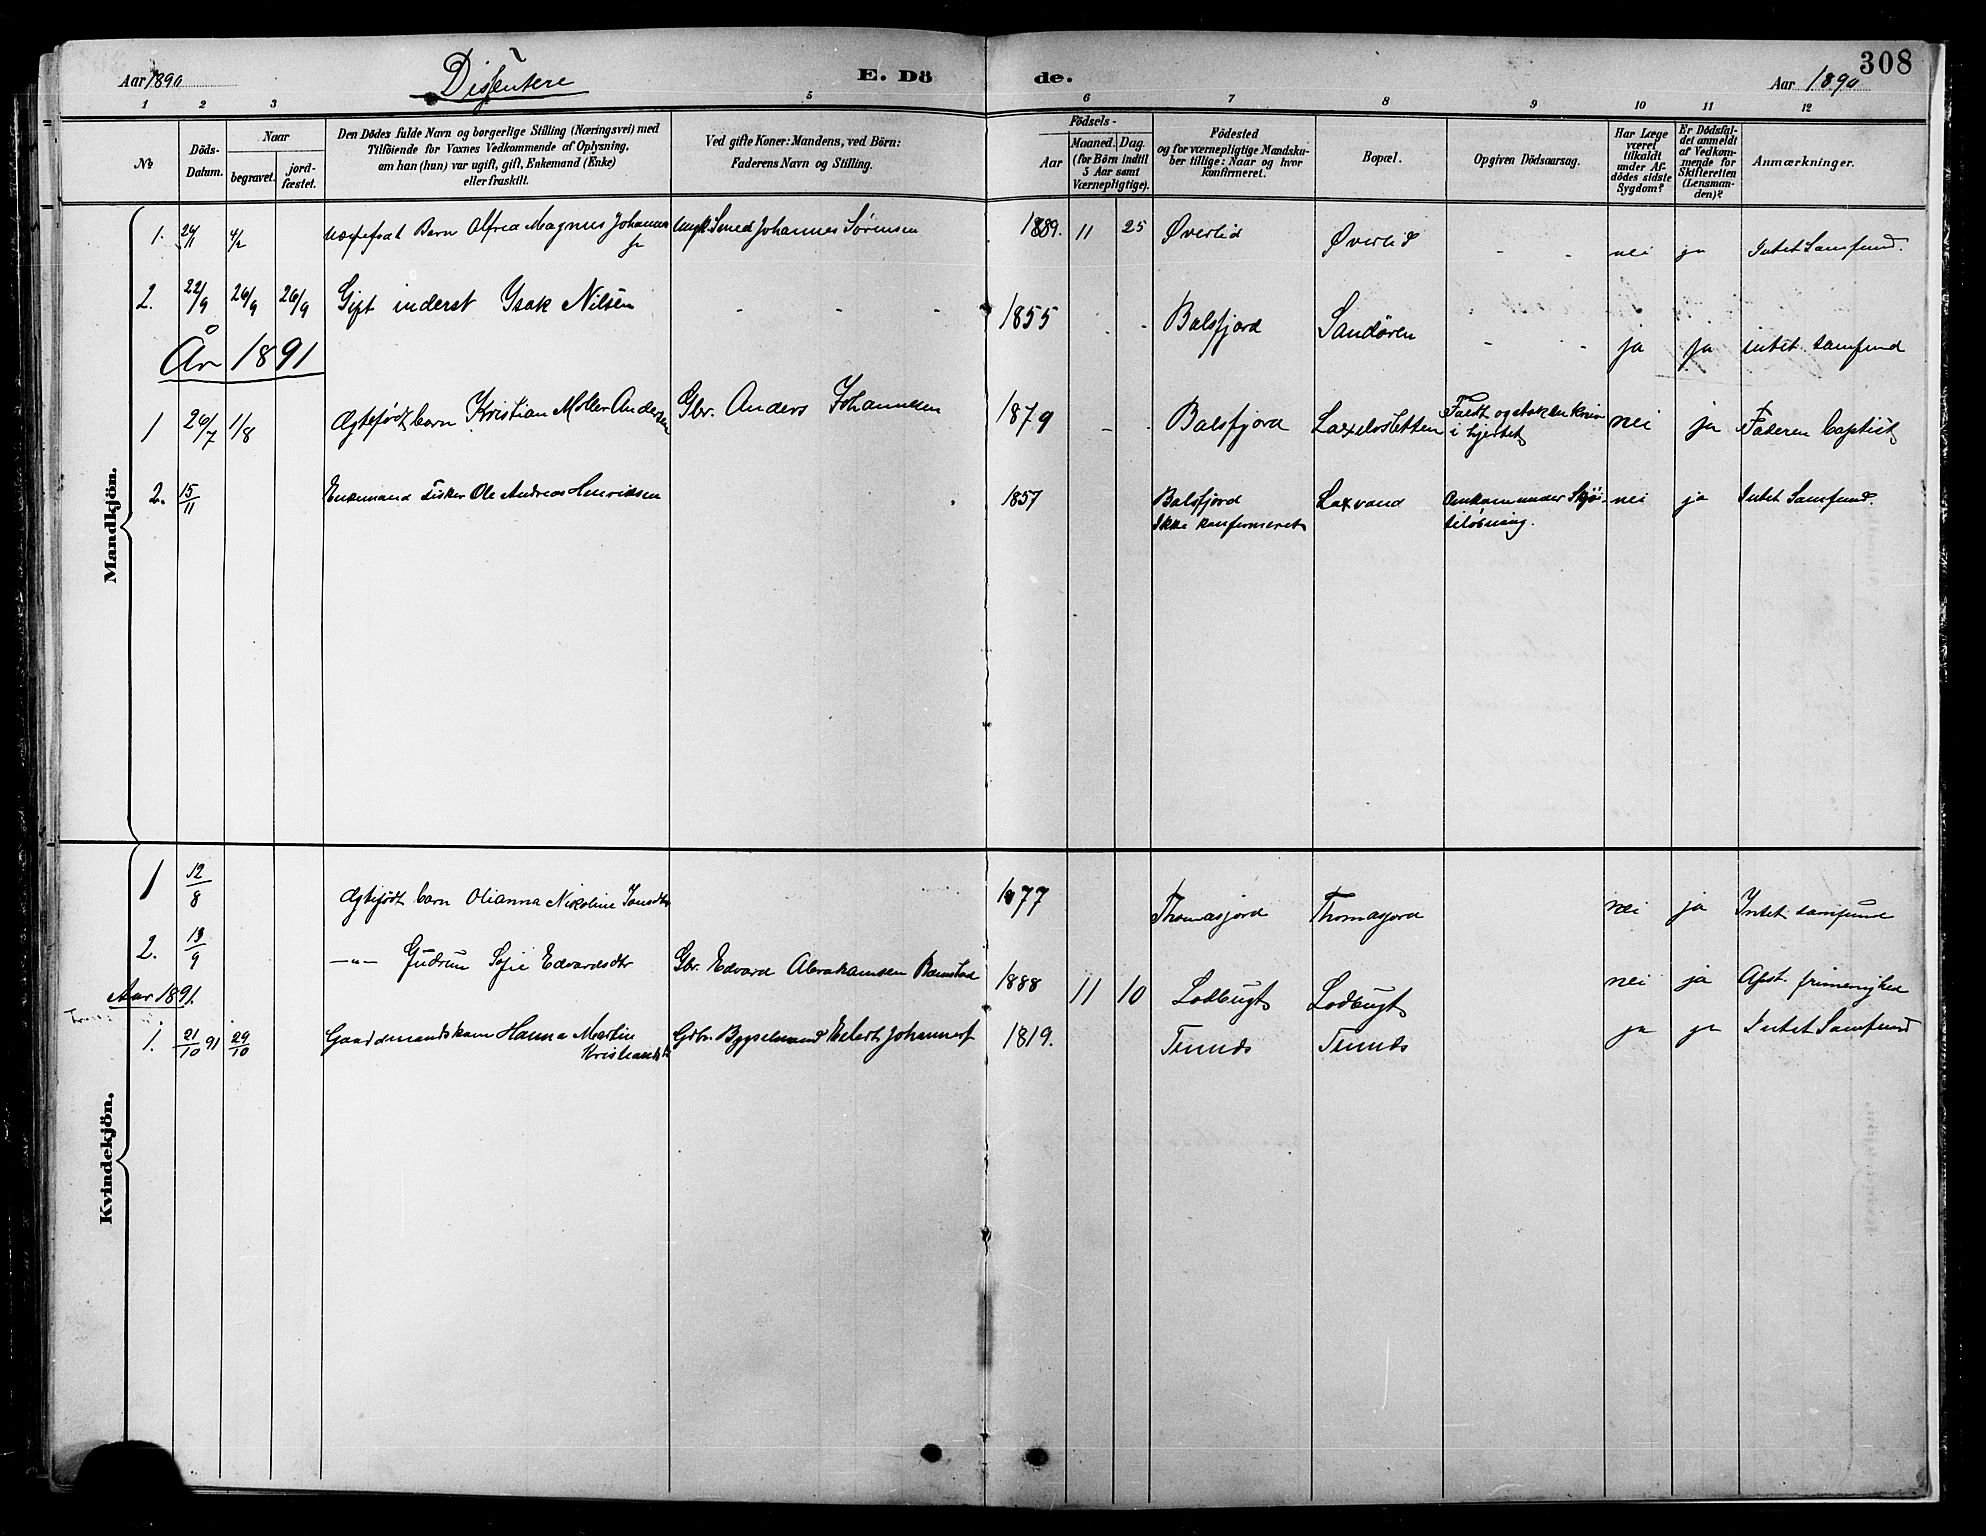 308
Aar 1890
Dissentere
E. Dö
de.
Aar 1890
1 2 3 5 6 7 8 9 10 11 12
No
Döds-
Datum.
Naar
begravet.
jord-
fæstet.
Den Dödes fulde Navn og borgerlige Stilling (Næringsvei) med
Tilföiende for Voxnes Vedkommende af Oplysning,
om han (hun) var ugift, gift, Enkemand (Enke)
eller fraskilt.
Ved gifte Koner: Mandens, ved Börn:
Faderens Navn og Stilling.
Födsels-
Aar
Maaned. Dag.
(for Börn indtil
5 Aar samt
Værnepligtige).
Födested
og for værnepligtige Mandsku-
ber tillige: Naar og hvor
konfirmeret.
Bopæl.
Opgiven Dödsaarsag.
Har Læge
været
tilkaldt
under Af-
dödes sidste
Sygdom?
Er Dödsfal-
det anmeldt
af Vedkom-
mende for
Skifteretten
(Lensman-
den)?
Anmærkninger.
Mandkjön.
1. 4/2 Barn Alfred Magnus Johannes Smed Johannes Sørensen 1889. 11 25 Øverlid Øverlid - - nei ja Intet Samfund.
2. 22/9 26/9 26/9 Gift inderst Isak Nilsen - - - 1855 - - Balsfjord Sandøren - - ja ja intet samfund
År 1891
1 26/7 1/8 Ægtefødt barn Kristian Møller Andersen Gbr. Anders Johannesen 1879 - - Balsfjord Laxelvsletten Faldt og stak en kniv
i hjertet nei ja Faderen baptist
2. 15/11 Enkemand Fisker Ole Andreas Henriksen 1857 Balsfjord
Ikke konfirmeret Laxvand Omkom under
nei ja Intet Samfund.
Kvindekjön.
1 12/8 Ægtefødt barn Olianna Nikoline 1877 Thomasjord Thomasjord nei ja Intet samfund
2. 13/9 —"— Gudrun Sofie Edvardsdtr Gbr. Edvard Abrahamsen 1888 11 10 Lodbugt Lodbugt nei ja Apst. frimenighed
Aar 1891.
1. 21/10 91 29/10 Gaardmandskone Hanna Martin
Kristiansdtr Gdbr. Bygselmand Eilert Johannes 1819. Tennes Tennes ja ja Intet Samfund